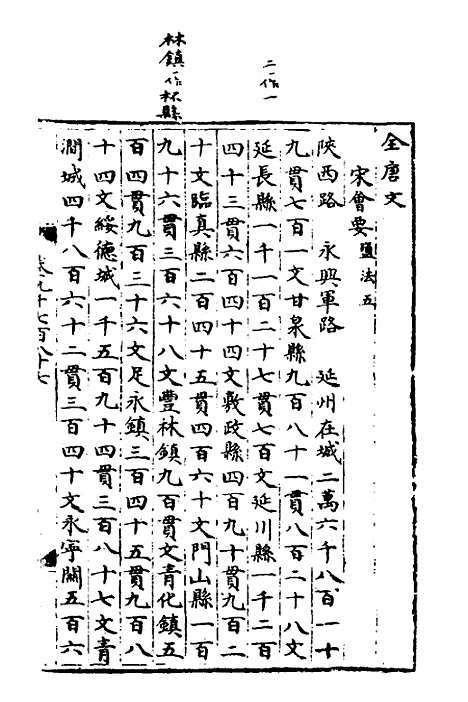 全唐文
宋會要 鹽法五
陝西路 永興軍路 延州在城二萬六千八百一十
九貫七百一文甘泉縣九百八十一貫八百二十八文
延長縣一千一百二十七貫七百文延川縣一千二百
四十三貫六百四十四文敷政縣四百九十貫九百二
十文臨真縣二百四十五貫四百六十文門山縣一百
九十六貫三百六十八文豐林鎮九百貫文青化鎮五
百四貫九百三十六文足永鎮三百四十五貫九百八
十四文綏德城一千五百九十四貫三百八十七文青
澗城四千八百六十二貫三百四十文永寧關五百六
二一作一
林鎮一作林縣
卷九千七百八十七